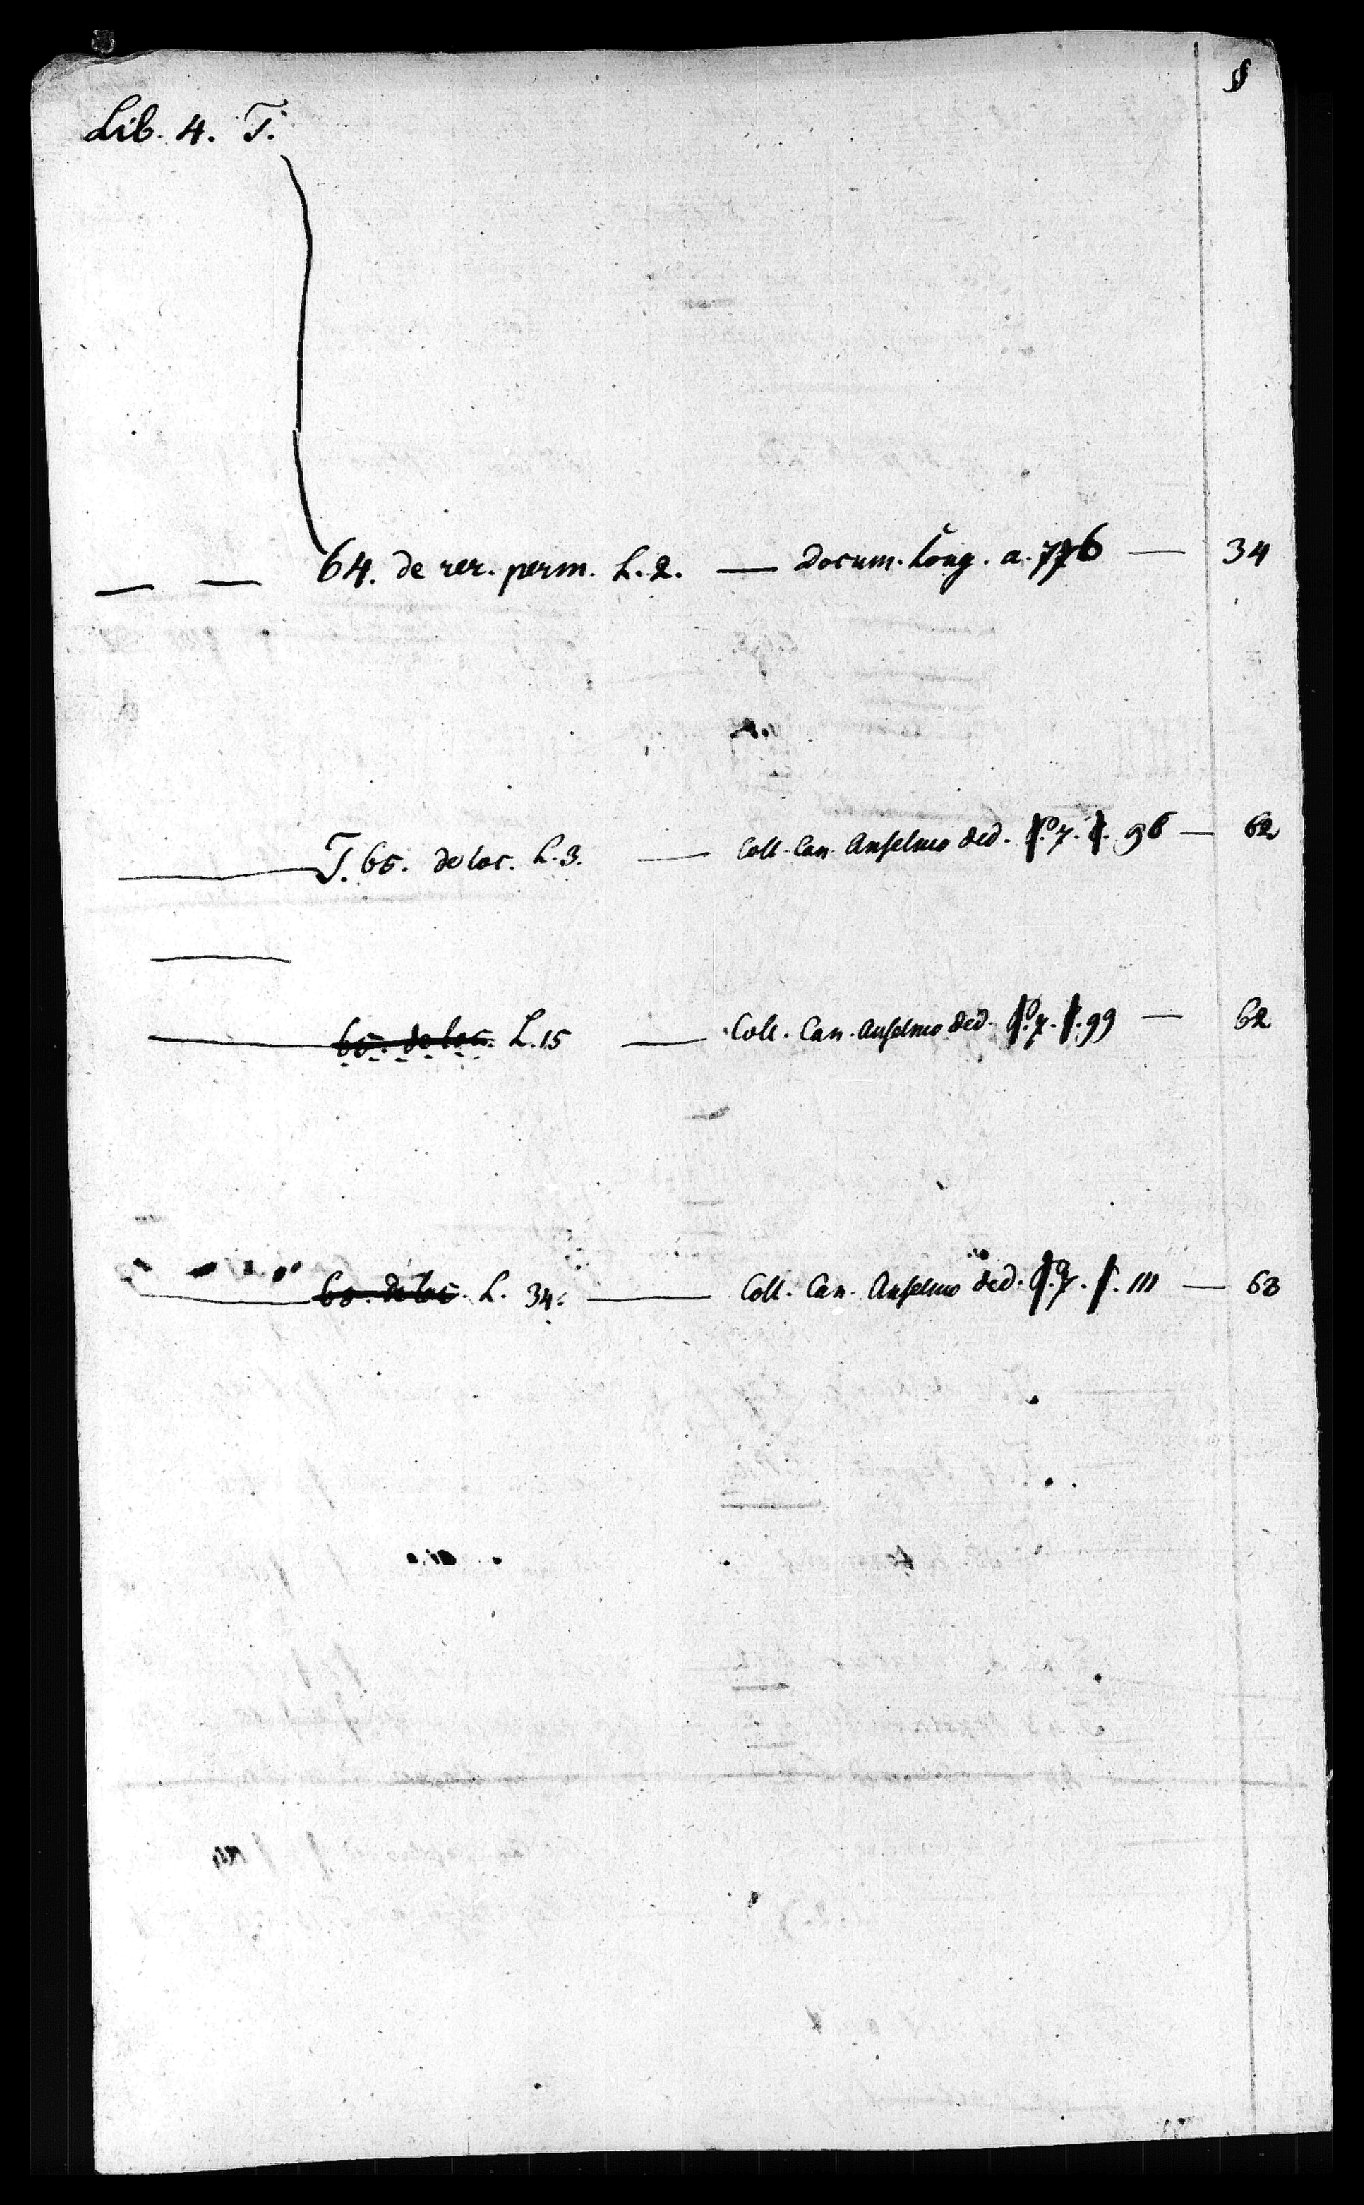 §
Lib. 4. T.
64. de rer. perm. L. 2. — Docum. Long. a. 776 — 34
T. 65. de loc. L. 3. — Coll. Can. Anselmo ded. P. 7. 96 — 62
65. de loc. L. 15 — Coll. Can. Anselmo ded. P. 7. 99 — 62
65. de loc. L. 34. — Coll. Can. Anselmo ded. P. 7. 111 — 63